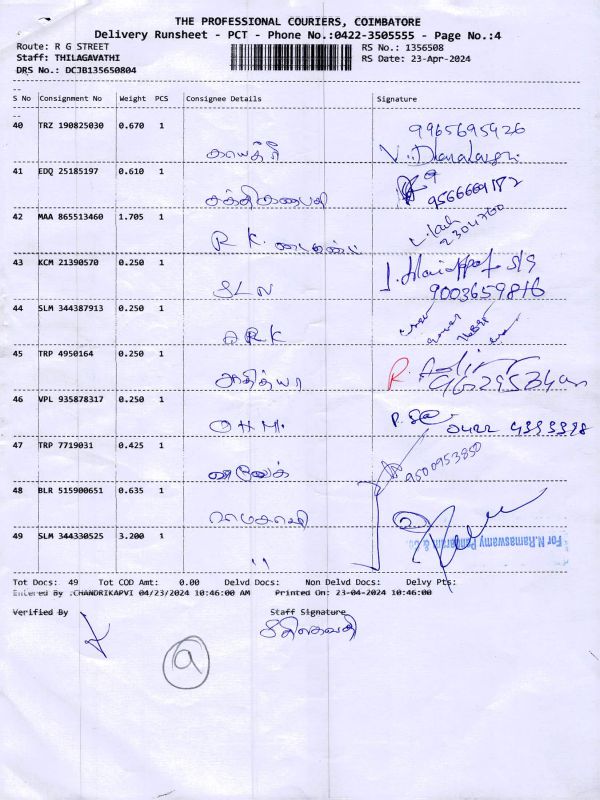 THE PROFESSIONAL COURIERS, COIMBATORE
Delivery Runsheet - PCT - Phone No.:0422-3505555 - Page No.:4
Route: R G STREET
RS No.: 1356508
Staff: THILAGAVATHI
RS Date: 23-Apr-2024
DRS No.: DCJB135650804
S No Consignment No Weight PCS Consignee Details Signature
40 TRZ 190825030 0.670 1
9965695426
காயத்ரி
41 EDQ 25185197 0.610 1
9566669182
சக்திகணபதி
42 MAA 865513460 1.705 1
2304760
R K.
43 KCM 21390570 0.250 1
9003659816
SLN
44 SLM 344387913 0.250 1
ARK
45 TRP 4950164 0.250 1
R.
ஆதித்யா
46 VPL 935878317 0.250 1
0422
OHM.
47 TRP 7719031 0.425 1
9500953850
விவேக்
48 BLR 515900651 0.635 1
49 SLM 344330525 3.200 1
For N.Ramaswamy
"
Tot Docs: 49 Tot COD Amt: 0.00 Delvd Docs: Non Delvd Docs: Delvy Pts:
Entered By :CHANDRIKAPVI 04/23/2024 10:46:00 AM Printed On: 23-04-2024 10:46:00
Verified By Staff Signature
a